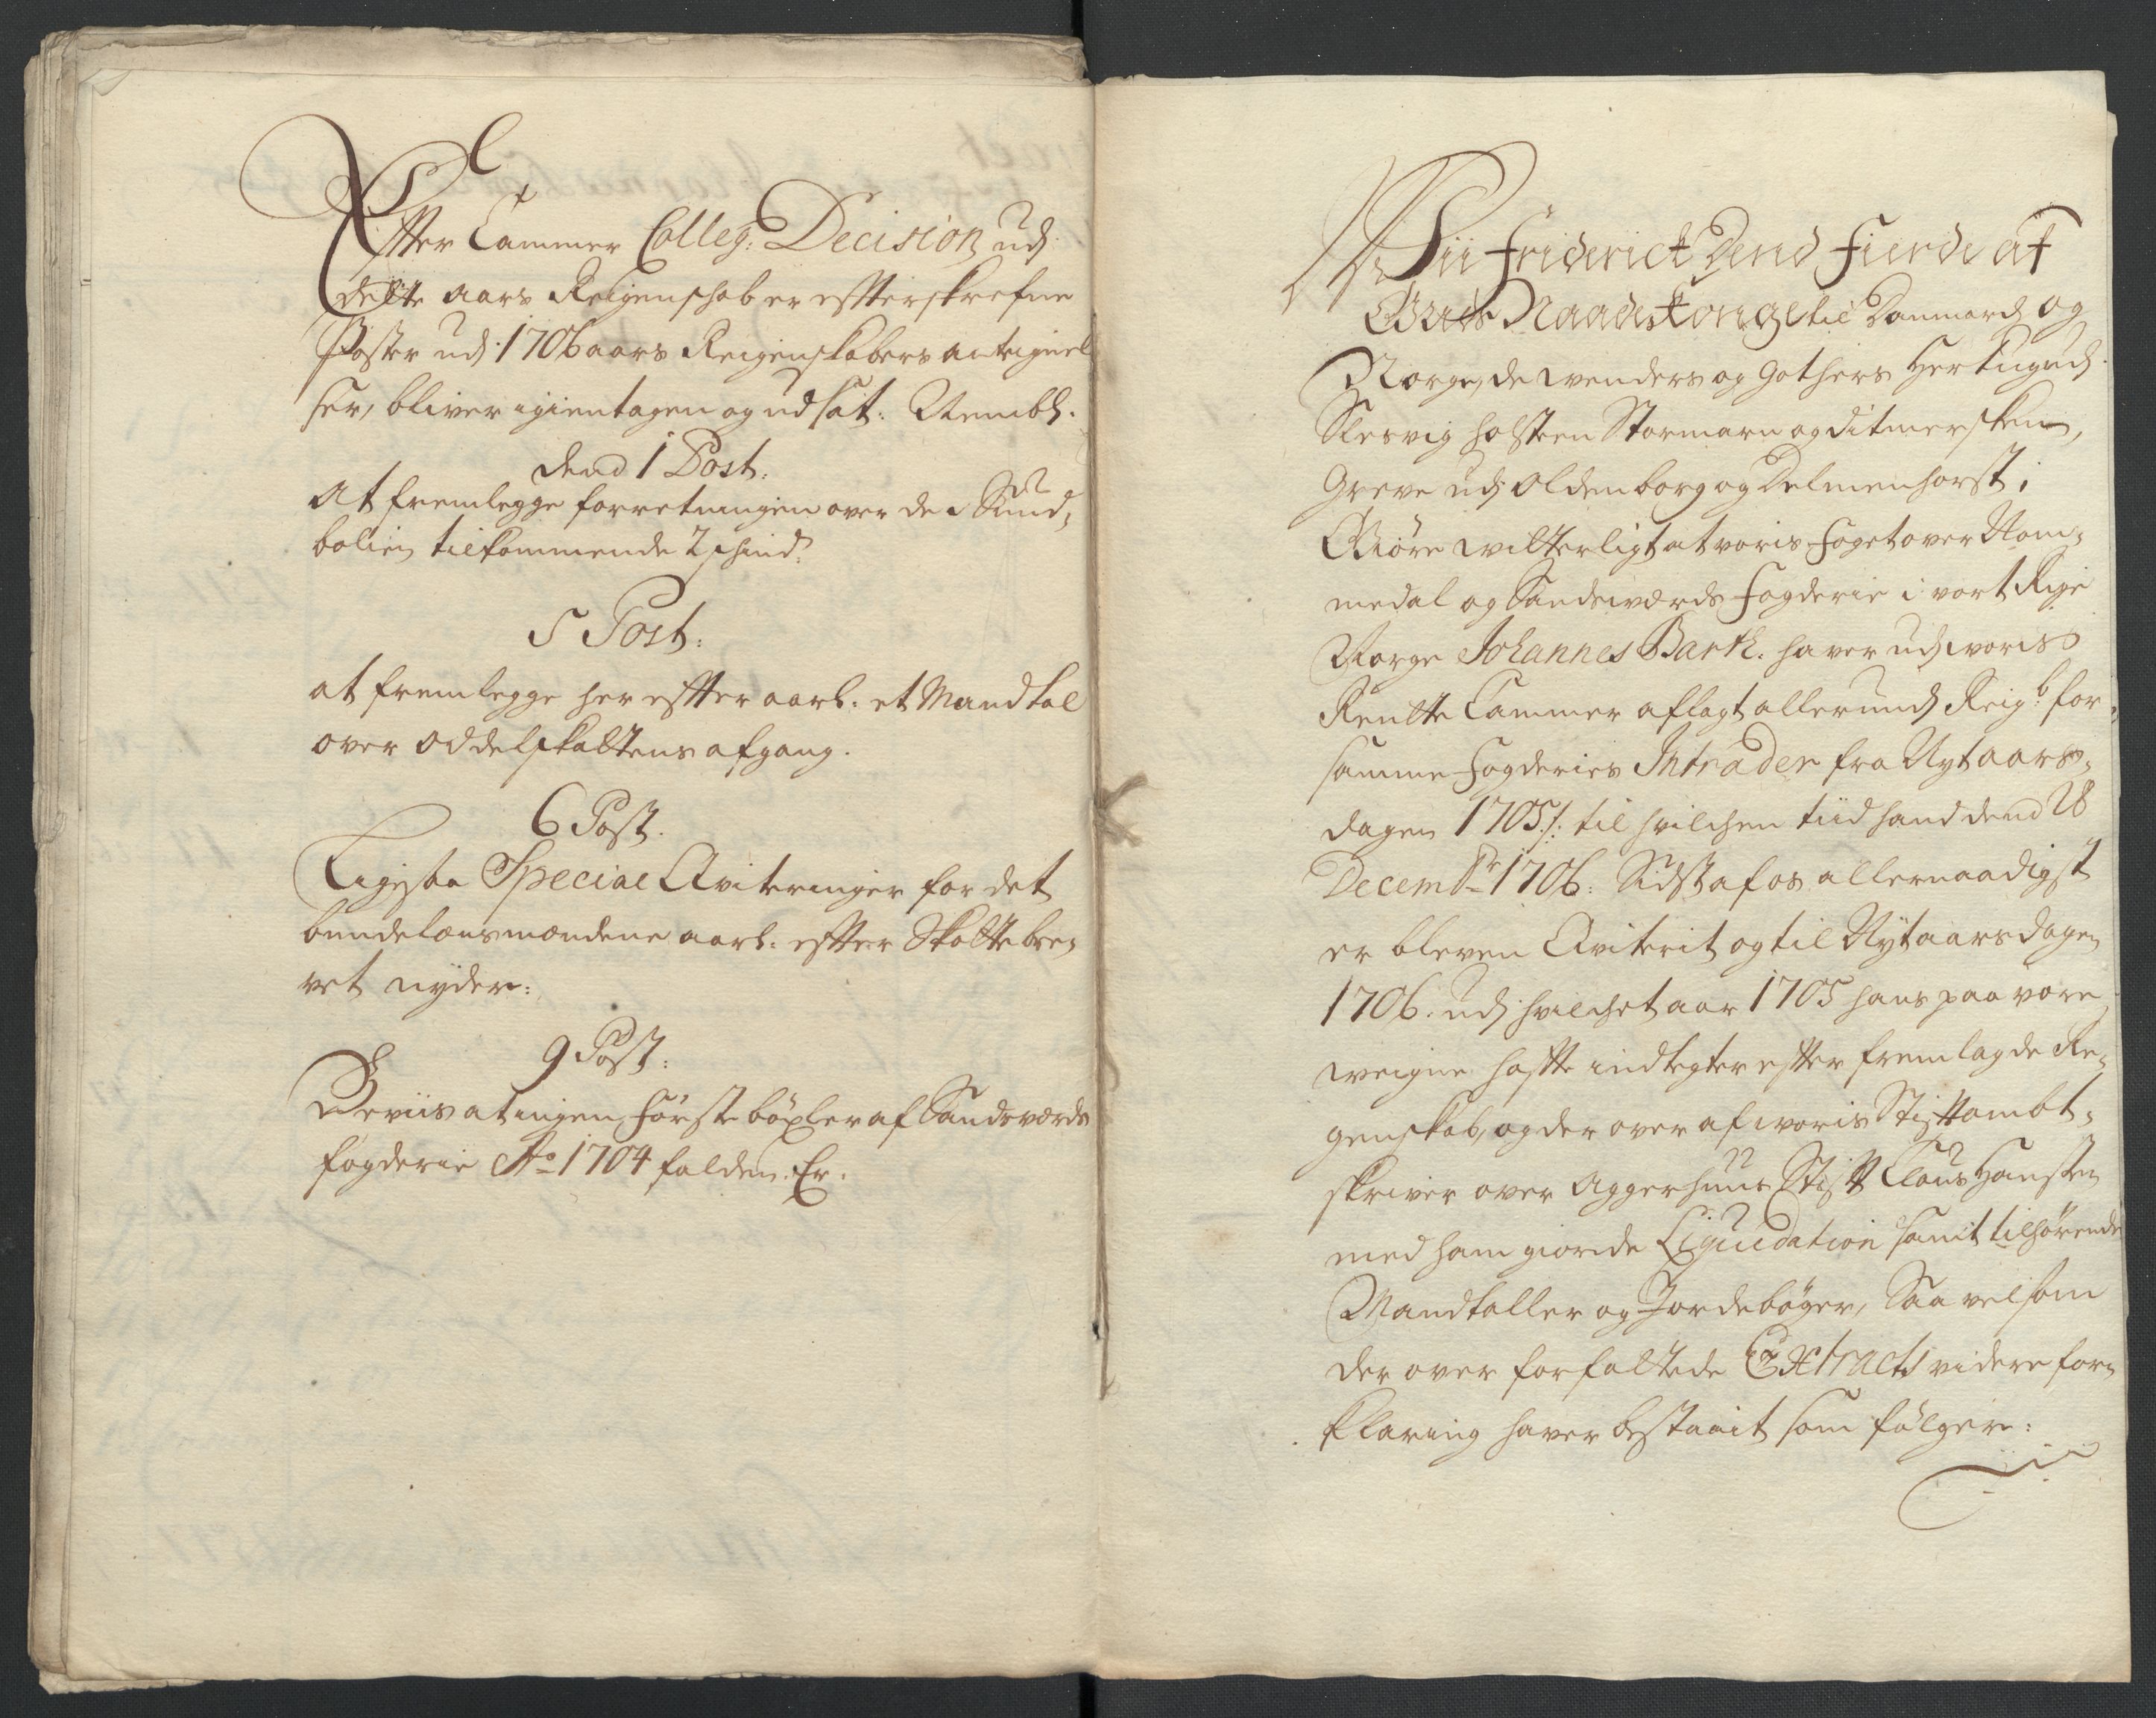 Effter Cammer Colleg: Decision udj
dette aars Reigenschab er effterskrefne
Poster udj 1706 aars Reigenskabers antegnel
ser, bliver igientagen og udsat: Nembl.
Dend 1 Post:
At fremlegge forretningen over de i Sund,
bolien tilkommende 2 schind:
5 Post:
at fremlegge her effter aarl: et Mandtal
over Oddelskattens afgang.
6 Post.
Ligesaa Special Qviteringer for det
bundelensmændene aarl: effter Skattebre,
vet nyder:
9 Post:
Beviis at ingen förste böxler af Sandsværds
fogderie Ao 1704 falden Er.
Wii Friderick Dend Fierde af
Guds Naade Konge til Danmarck og
Norge, de Wenders og Gothers Hertug udj
Slesvig Holsten Stormarn og Ditmersken,
Greve udj Oldenborg og Delmenhorst;
Giøre witterligt at voris Foget over Nom,
medal og Sandsværds Fogderie i vort Rige
Norge Johannes Bark. haver udj voris
Rentte Cammer aflagt allerundj Reigb: for
samme Fogderies Intrader fra Nytaars,
dagen 1705/: til hvilchen tiid hand dend 28
Decembr 1706: Sidst af os allernaadigst
er bleven Qviterit og til Nytaarsdagen
1706. udj hvilchet aar 1705 hans paa vore
weigne hafte indtegter effter fremlagde Re,
genskab, og der over af voris Stiftambt,
skriver over Aggerhuus Stift Claus Hansen
med ham giorde Liquidation samt tilhørende
Mandtaller og Jordebøger, Saa vel som
der over forfattede Extracts videre for,
klaring haver bestaait som fölger: